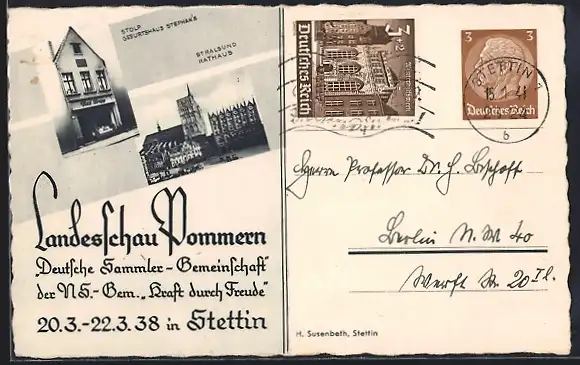 STOLP
GEBURTSHAUS STEPHAN'S
STRALSUND
RATHAUS
Landesschau Pommern
„Deutsche Sammler-Gemeinschaft"
der NS.-Gem. „Kraft durch Freude"
20.3.-22.3.38 in Stettin
3+2
Deutsches Reich
3 3
Deutsches Reich
STETTIN
b
Herrn Professor Dr. H. Bischoff
Berlin N.W 40
Werft Str. 20 II.
H. Susenbeth, Stettin